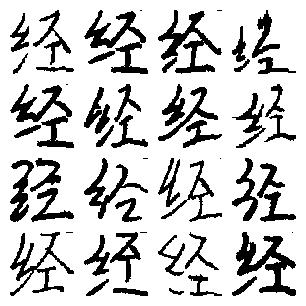 经经经经
经经经经
经经经经
经经经经